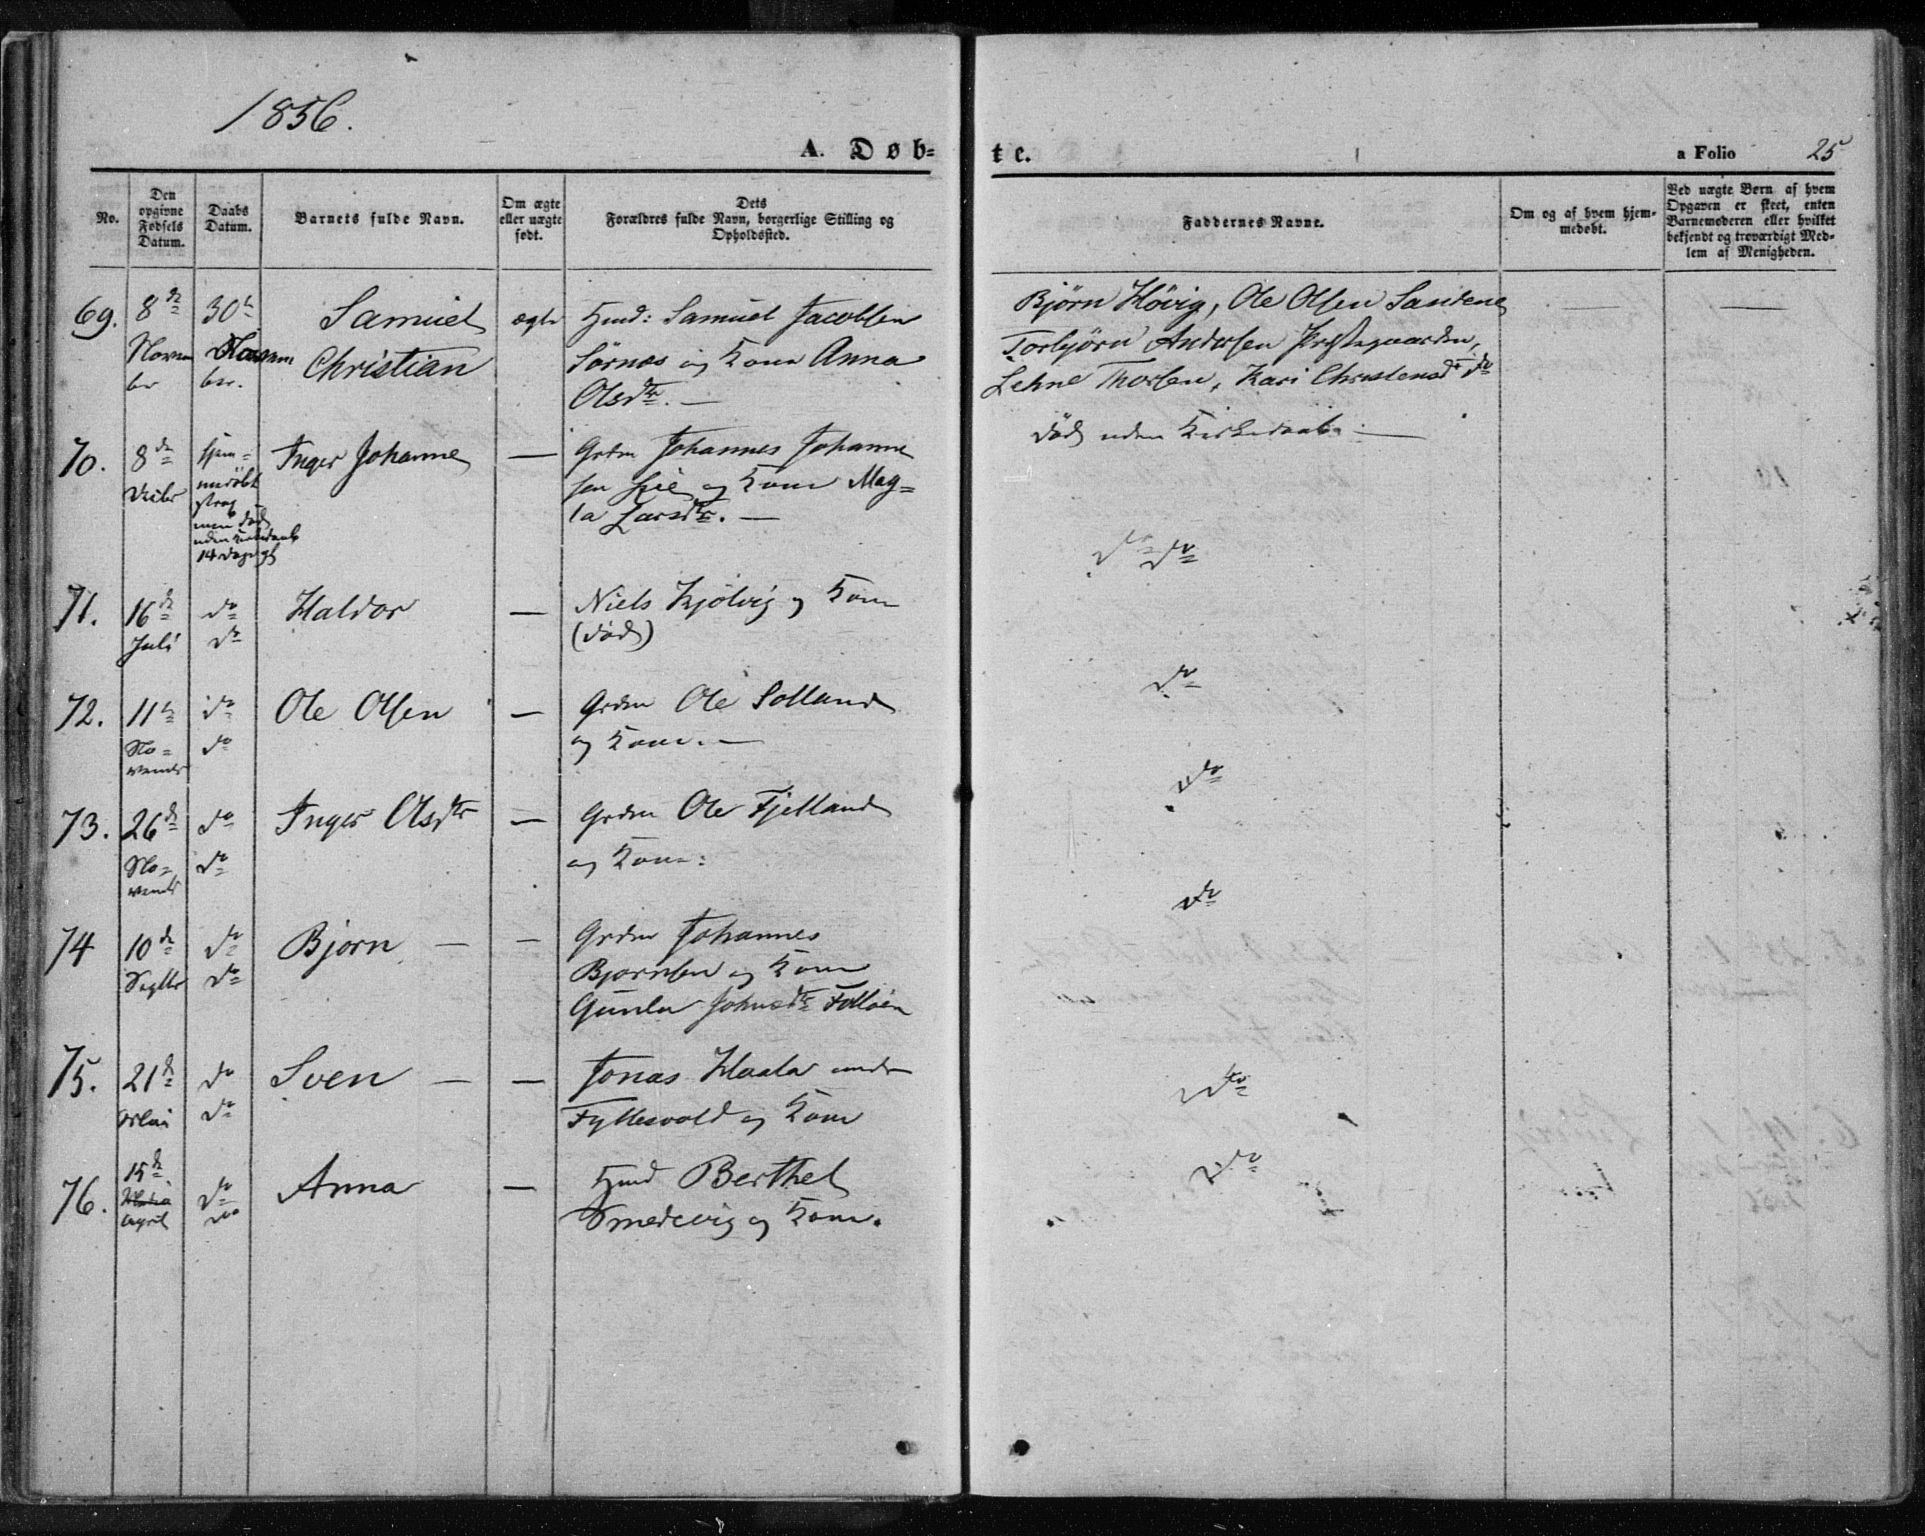 1856.
A. Døb=
te.
a Folio 25
No.
Den opgivne Fødsels Datum.
Daabs Datum.
Barnets fulde Navn.
Om ægte eller uægte født.
Dets Forældres fulde Navn, borgerlige Stilling og Opholdssted.
Faddernes Navne.
Om og af hvem hjemmedøbt.
Ved uægte Børn af hvem Opgaven er skeet, enten Barnemoderen eller hvilket bekjendt og troværdigt Medlem af Menigheden.
69. 8de 30te Samuel ægte Huusd: Samuel Jacobsen
Novem ber Novem ber. Christian Sörnes og Kone Anna
Olsdtr. —
Björn Hövig, Ole Olsen Sandene
Torbjörn Andersen Præstegaarden,
Lehne Thorsen, Kari Christensdtr do
70. 8de Decbr hjem= medöbt strax men död uden Kirkedaab 14 Dage gl Inger Johanne — Grdm Johannes Johanne
sen Lie og Kone Mag=
la Larsdtr. —
död uden Kirkedaab —
71. 16de Juli do do Haldor — Niels Kjölvig og Kone
(död)
do do
72. 11te No= vembr do do Ole Olsen — Grdm Ole Solland
og Kone. —
do
73. 26de No= vembr do do Inger Olsdtr — Grdm Ole Fjelland
og Kone:
do
74 10de Septbr do do Bjørn — — Grdm Johannes
Bjørnsen og Kone
Gunla Johnsdtr
do
75. 21de do do Sven — — Jonas under
og Kone
do
76. 15de April do do Anna — Huusd Berthel
Smedevig og Kone.
do